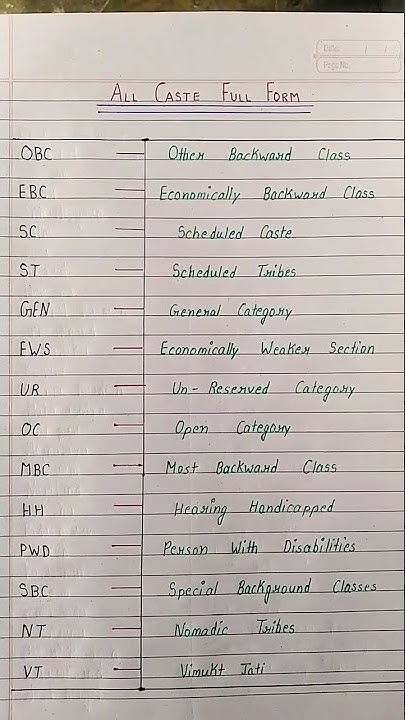 Date: / /
Page No.
ALL CASTE FULL FORM
OBC — Other Backward Class
EBC — Economically Backward Class
SC — Scheduled Caste
ST — Scheduled Tribes
GEN — General Category
EWS — Economically Weaker Section
UR — Un-Reserved Category
OC — Open Category
MBC — Most Backward Class
HH — Hearing Handicapped
PWD — Person With Disabilities
SBC — Special Background Classes
NT — Nomadic Tribes
VT — Vimukt Jati